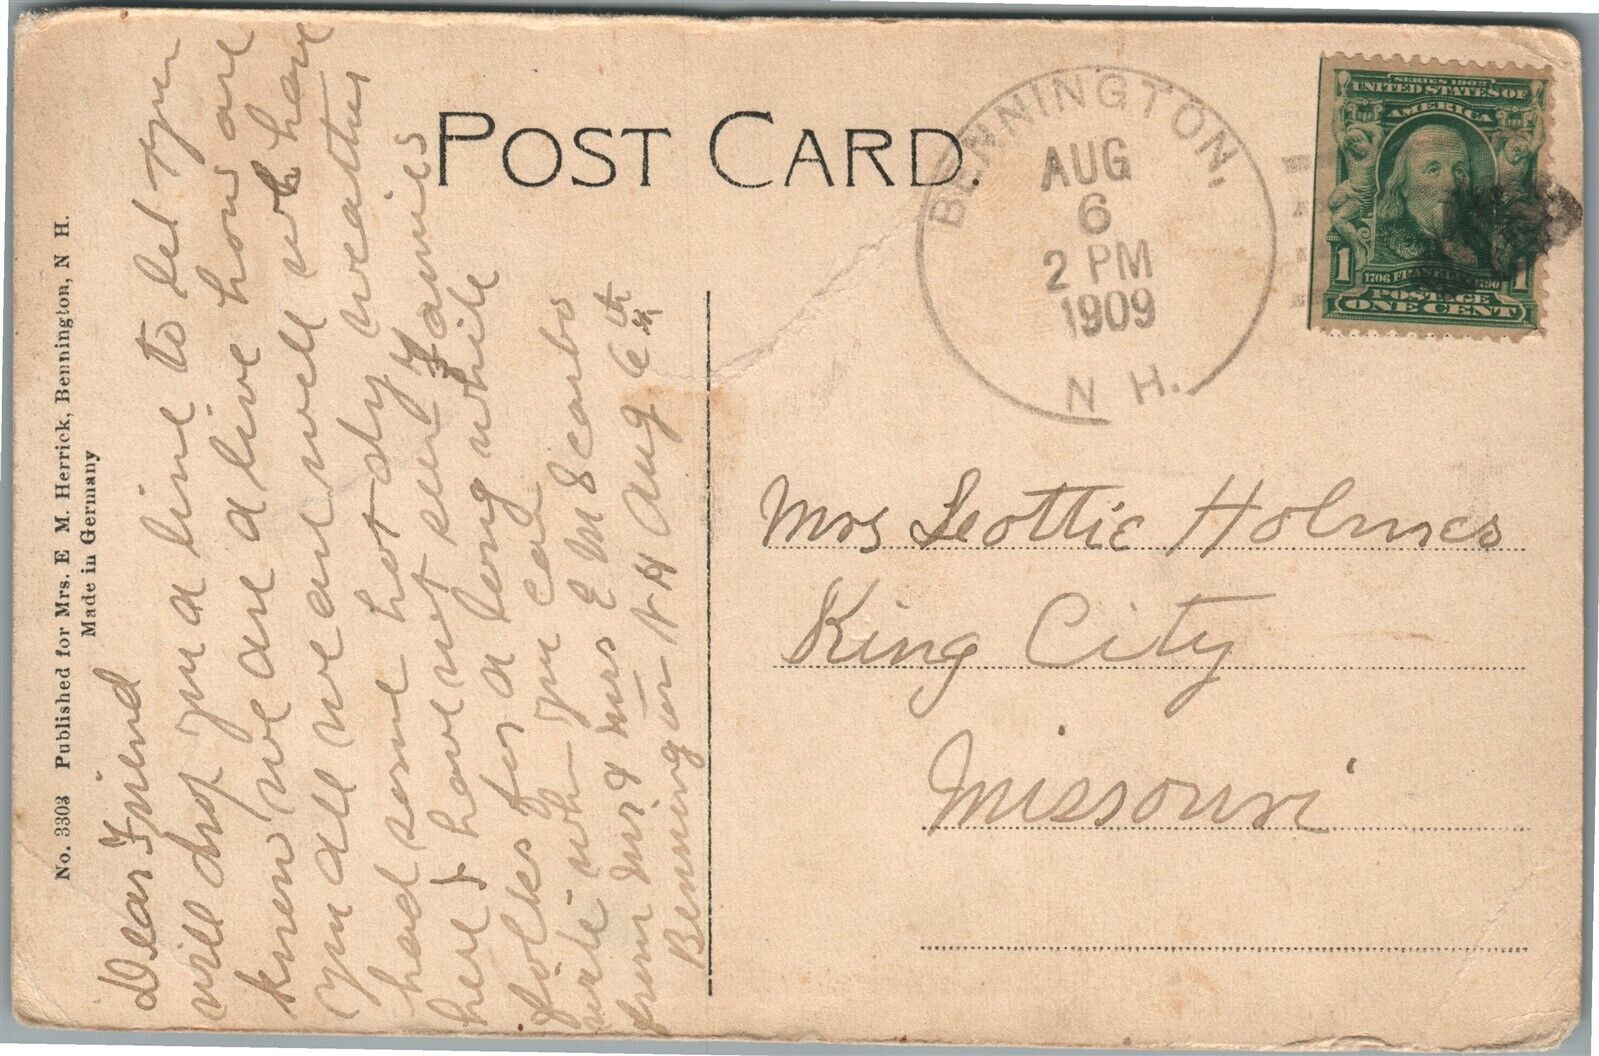 POST CARD.
BENNINGTON,
AUG
6
2 PM
1909
N H.
SERIES 1902
UNITED STATES OF
AMERICA
1 1
1706 FRANKLIN 1790
POSTAGE
ONE CENT
No. 3303 Published for Mrs. E M. Herrick, Bennington, N H.
Made in Germany
Dear Friend
will drop you a line to let you
know we are a live how are
you all we are well we have
had some hot dry weather
here I have not seen Famies
folks for a long while
write when you can
from Mr & Mrs E M Scarbo
Bennington N H Aug 6th
Mrs Leottie Holmes
King City
Missouri